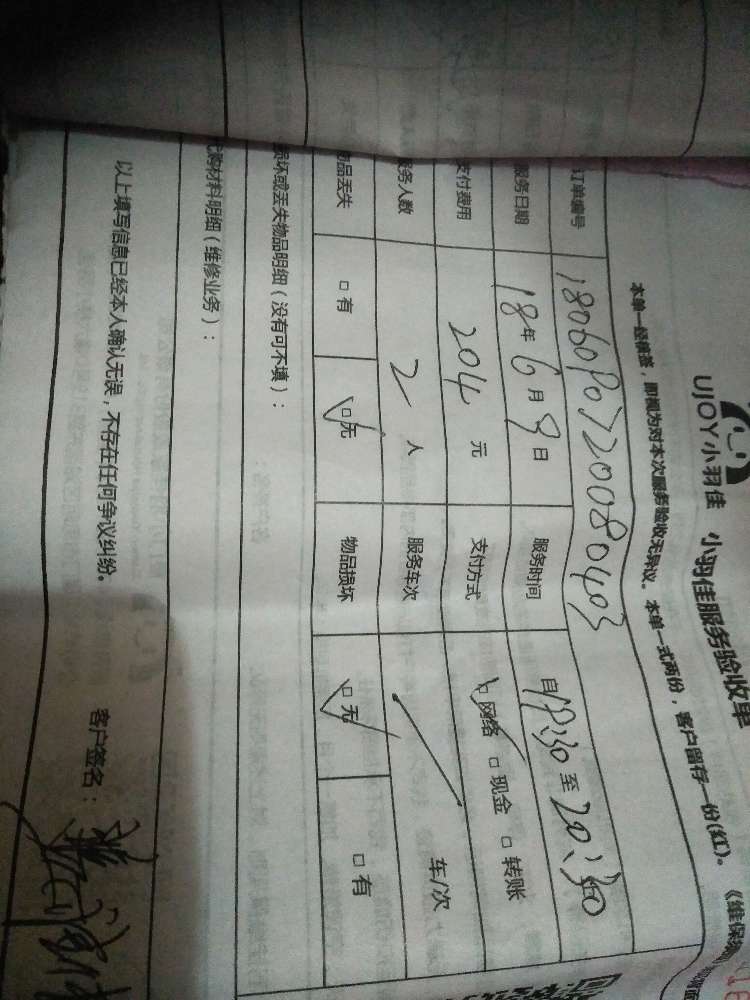 UJOY小羽佳 小羽佳服务验收单
本单一经签签，即视为对本次服务验收无异议。本单一式两份，客户留存一份(红)。《维保
订单编号
服务日期 18年6月9日 服务时间 自 至20:30
支付费用 204元 支付方式 网络 现金 转账
服务人数 2人 服务车次 车/次
物品丢失 有 无 物品损坏 无 有
损坏或丢失物品明细（没有可不填）：
代购材料明细（维修业务）：
以上填写信息已经本人确认无误，不存在任何争议纠纷。 客户签名：